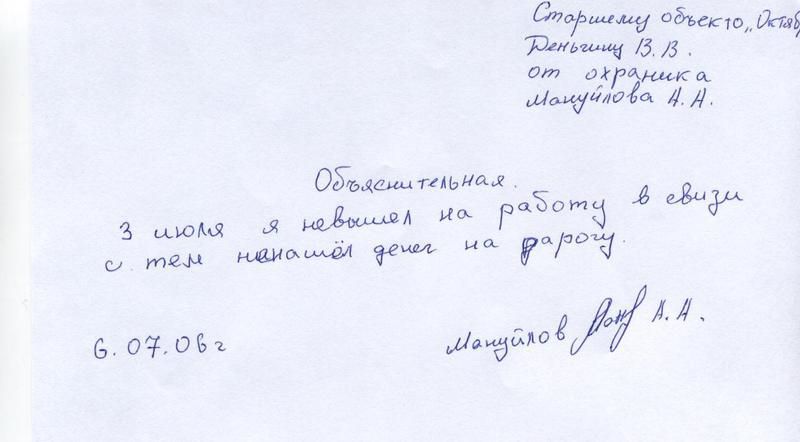 Старшему объекто „Октяб
Деньгину В.В.
от охраника
Мануйлова А.А.
Объяснительная.
3 июля я невышел на работу в свизи
с тем ненашёл денег на дарогу.
6.07.06 г
Мануйлов А.А.